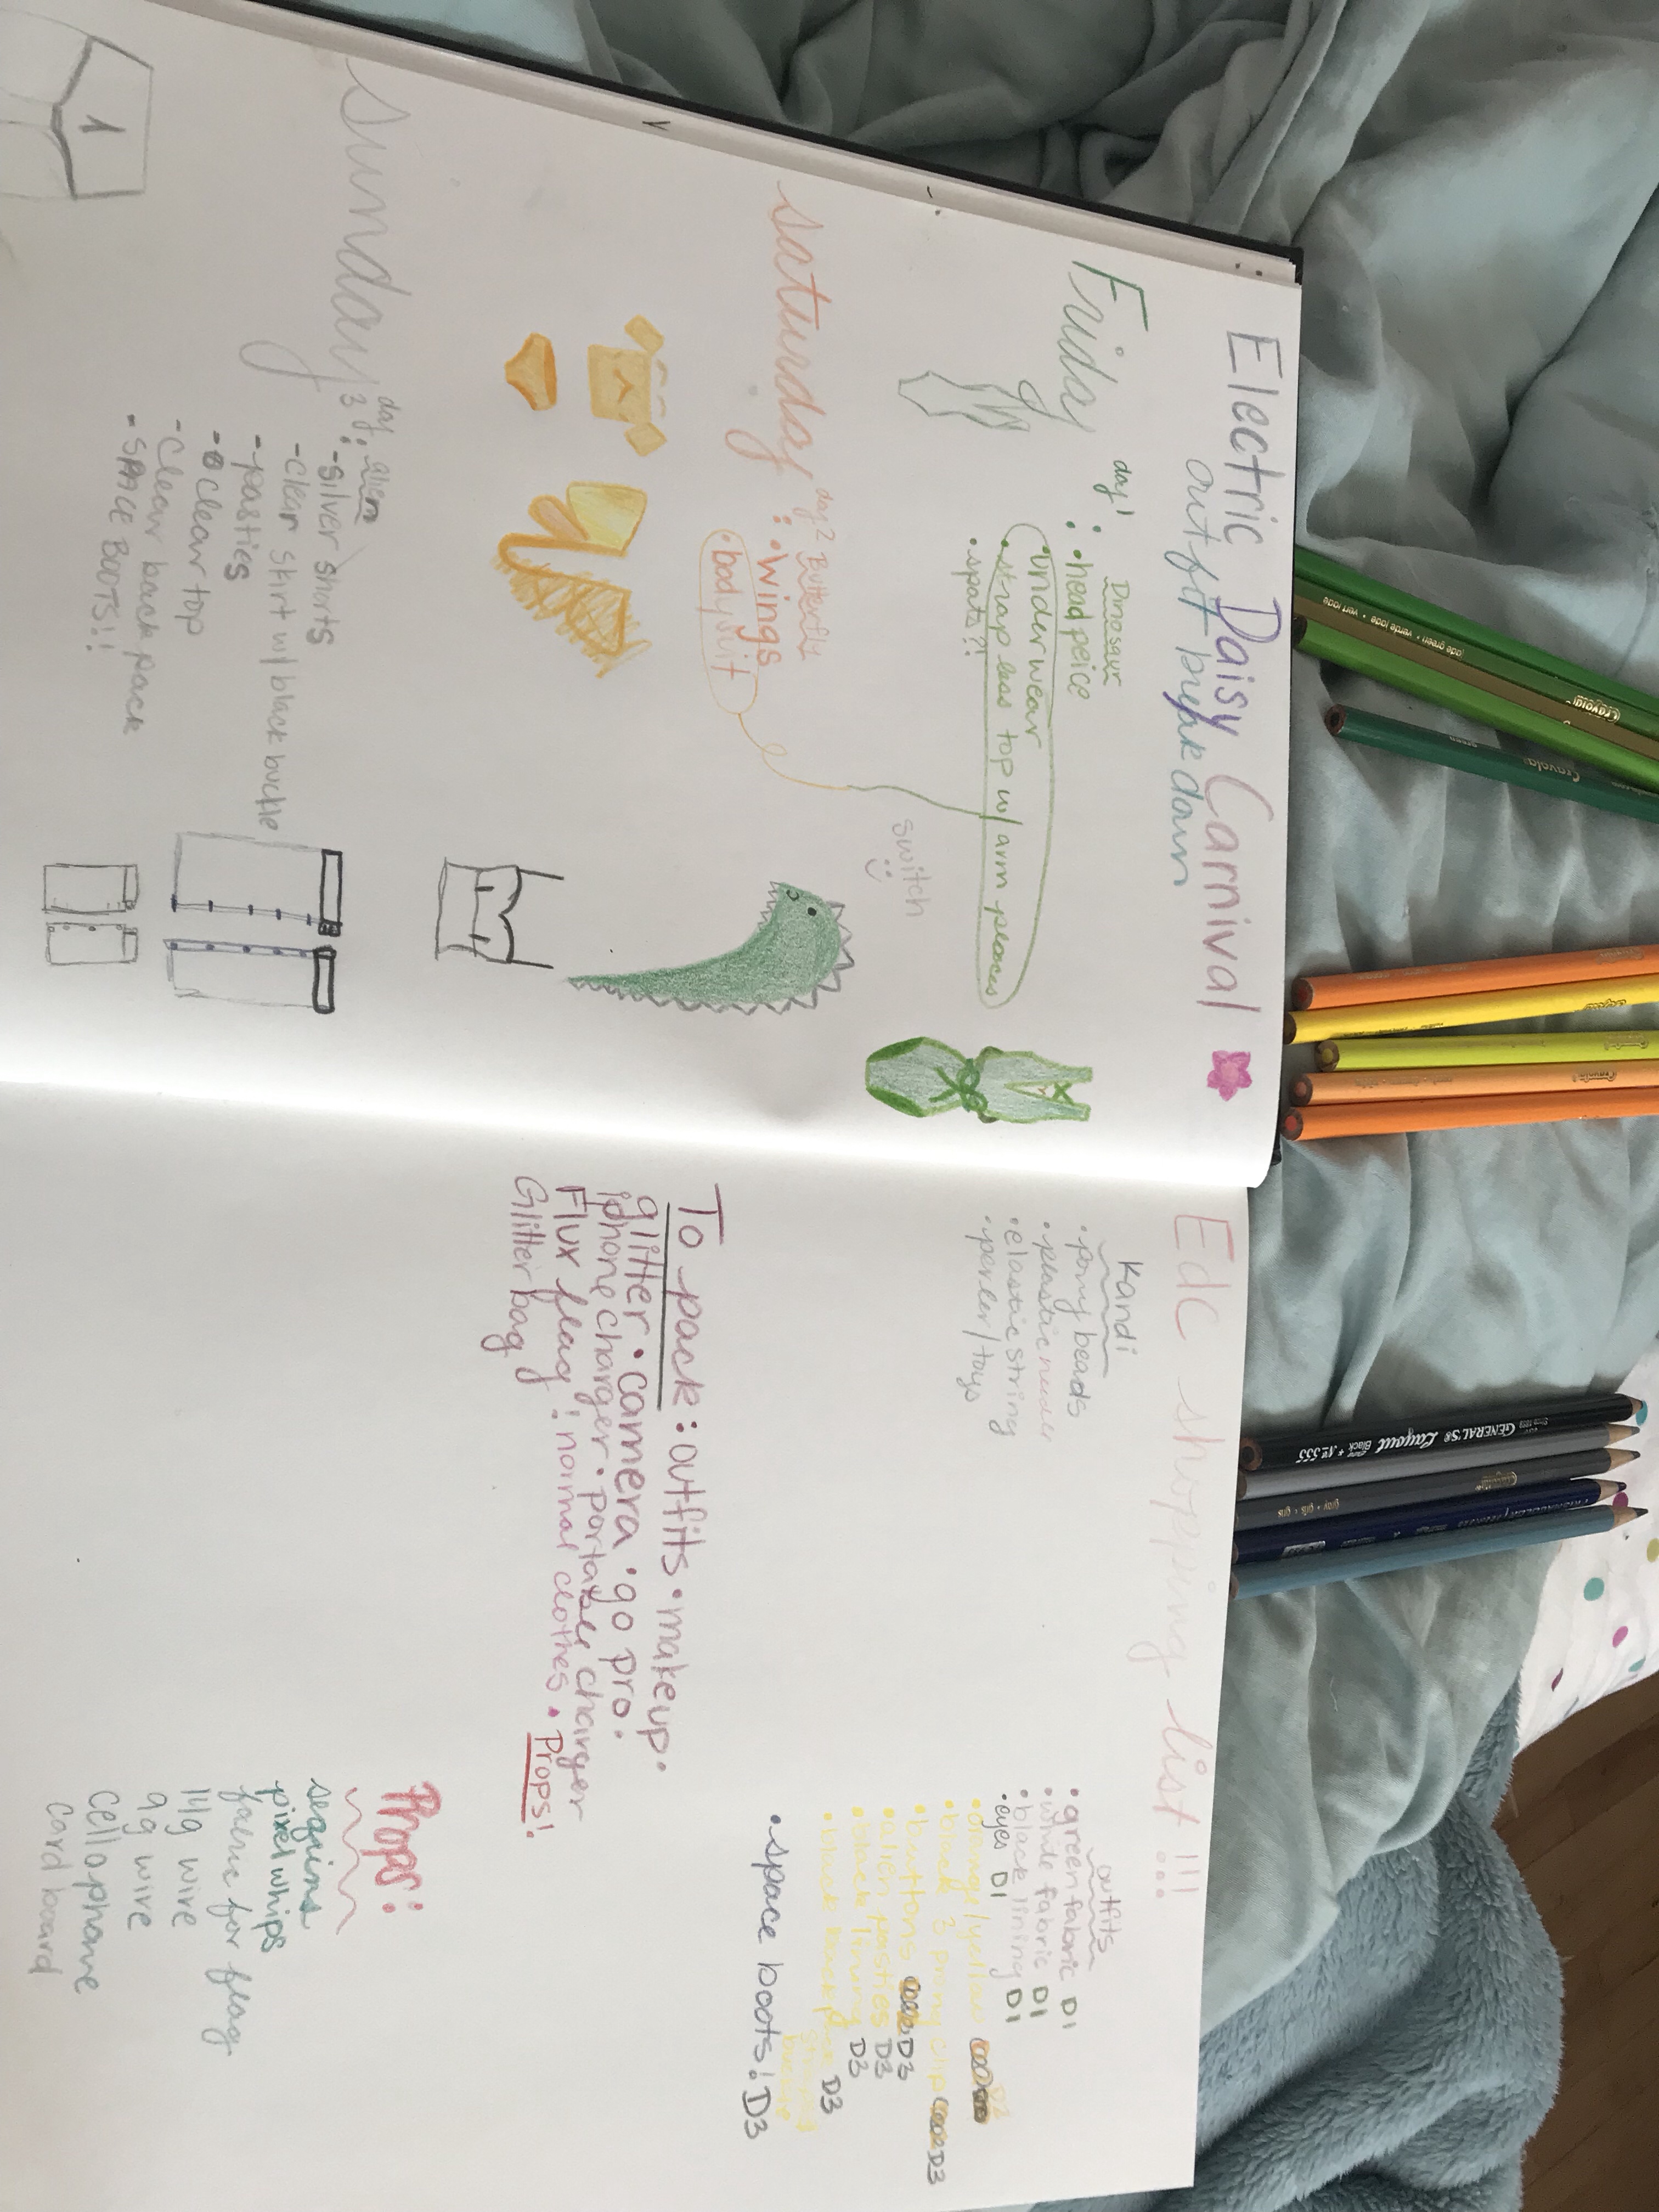 Electric Daisy Carnival
outfit break down
Friday day 1 : Dinosaur
• head peice
• underwear
• strapless top w/ arm places
• spats?!
switch
saturday day 2 : Butterfly
• wings
• bodysuit
sunday day 3 : alien
- silver shorts
- clear skirt w/ black buckle
- pasties
- clear top
- clear back pack
- SPACE BOOTS!!
Edc shopping list!!!
Kandi
• pony beads
• plastic
• elastic string
• perler/toys
outfits
• green fabric D1
• white fabric D1
• black lining D1
• eyes D1
• orange/yellow D2
• black 3 prong clip D3
• buttons D3
• alien pasties D3
• black lining D3
• black D3
• space boots! D3
To pack: outfits • makeup •
glitter • camera • go pro •
iphone charger • portable charger
Flux flag • normal clothes • Props!
Glitter bag
Props:
sequins
pixel whips
fabric for flag
14g wire
9g wire
cellophane
card board
Crayola
jade green • vert jade • verde jade
Crayola
green
GENERAL'S® Layout
Black * Nº 555
gray • gris • gris